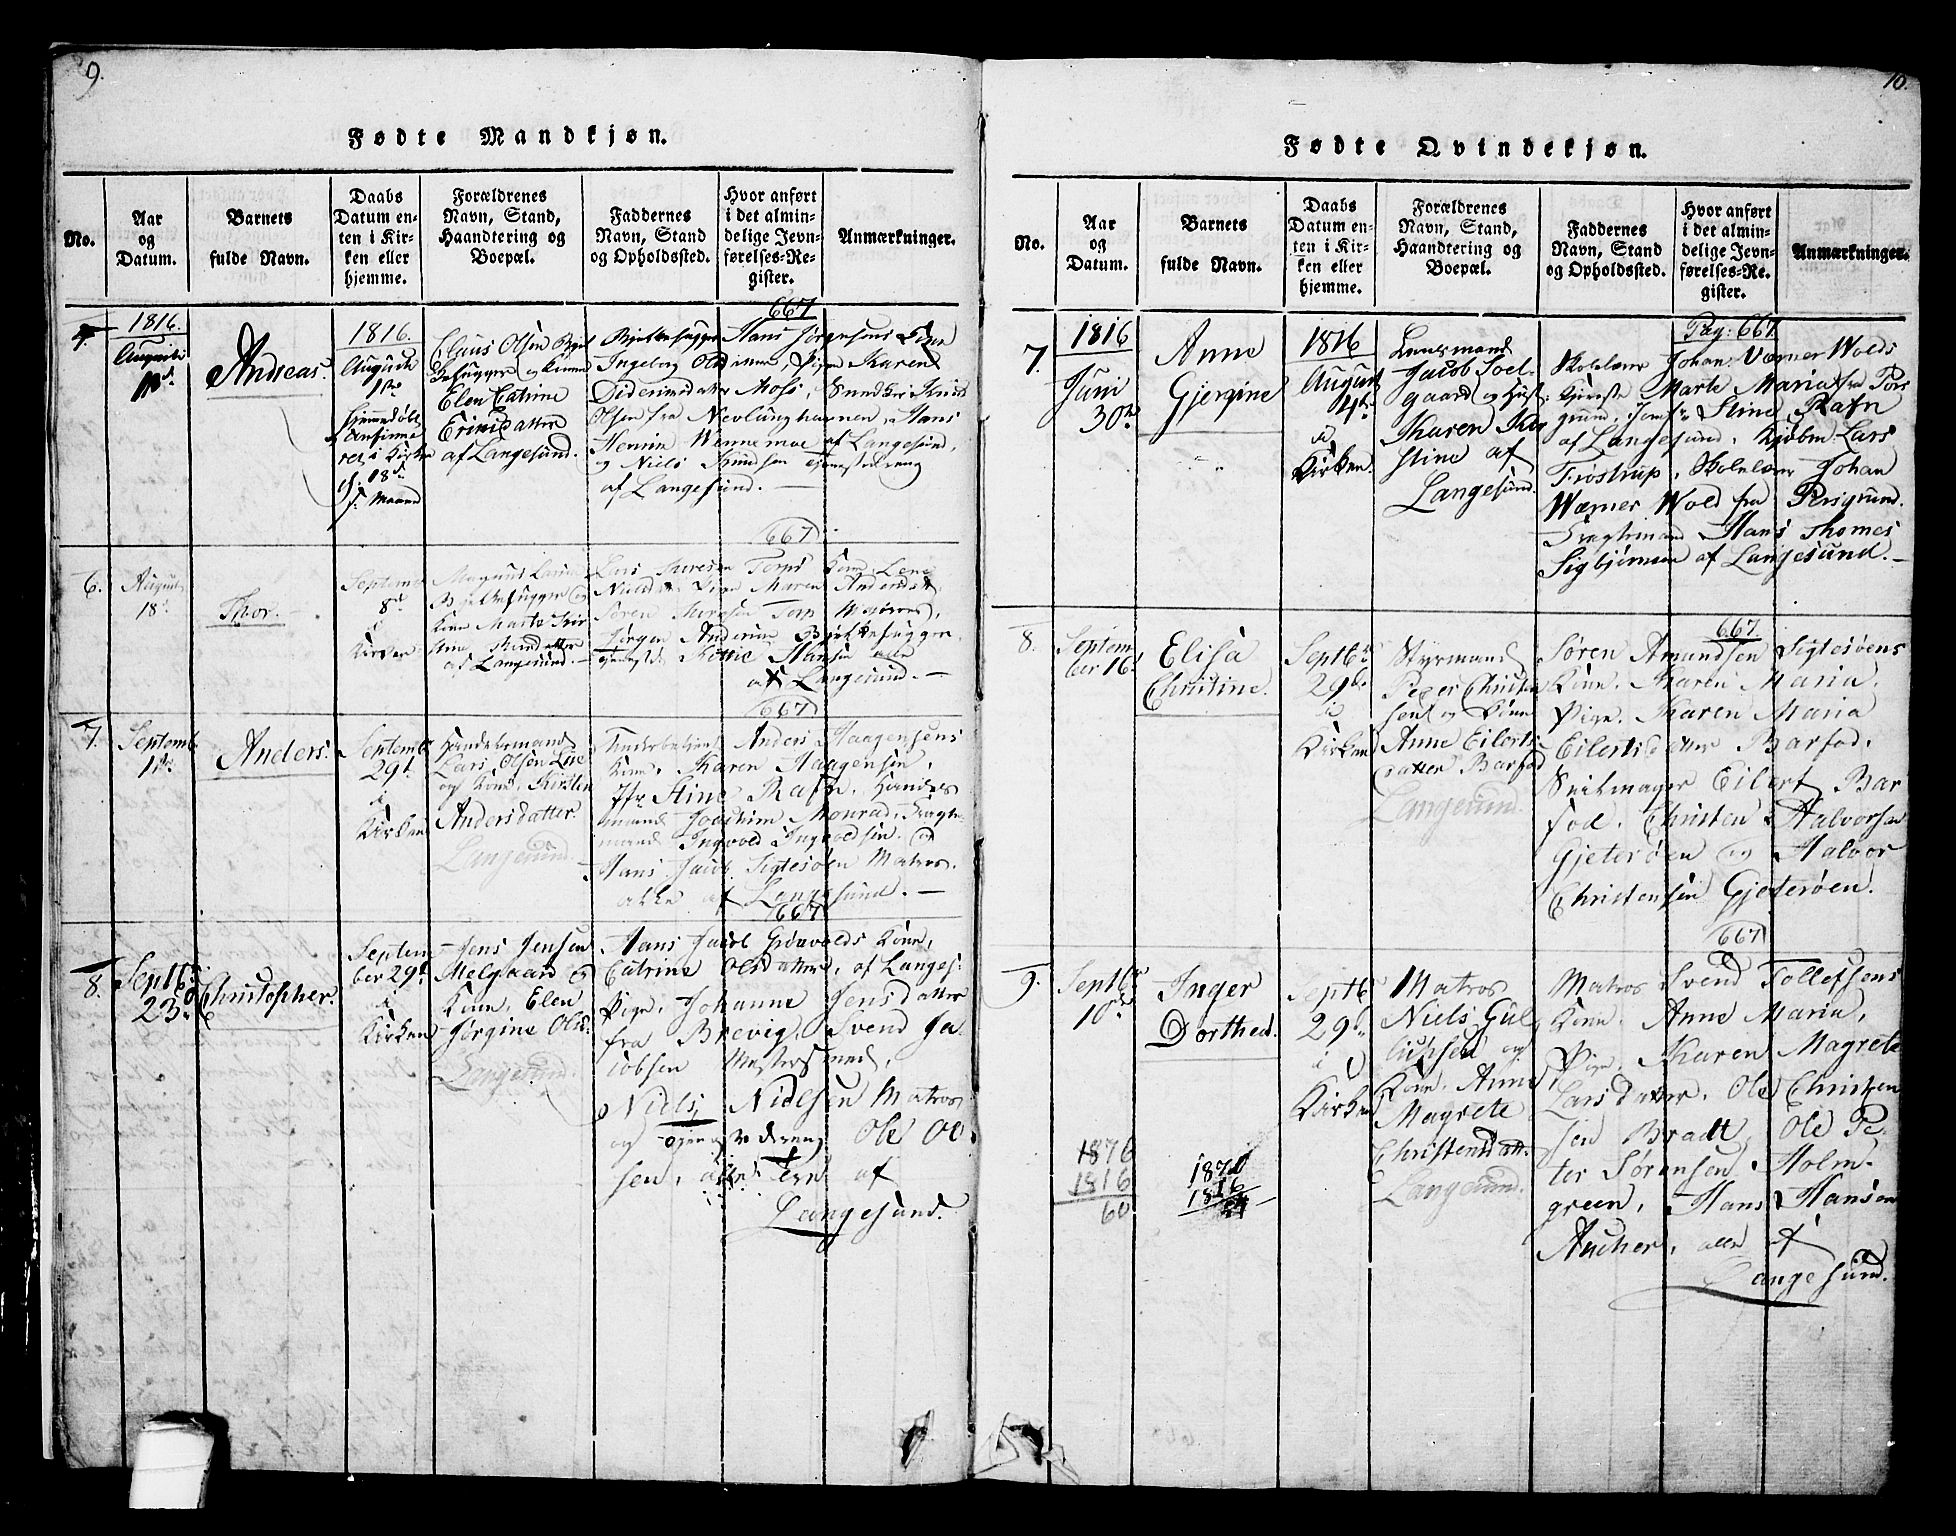 9.
Fødte Mandkjøn.
No.
Aar
og
Datum.
Barnets
fulde Navn.
Daabs
Datum en-
ten i Kir-
ken eller
hjemme.
Forældrenes
Navn, Stand,
Haandtering og
Boepæl.
Faddernes
Navn, Stand
og Opholdssted.
Hvor anført
i det almin-
delige Jevn-
førelses-Re-
gister.
Anmærkninger.
1816.
Andreas.
1816.
August
1ste
d. 18d
Claus Olsen
og Kone
Elen Catrine
af Langesund.
667
Hans Jørgensens Kone
Ingeborg Pige Karen
Moss,
Olsen fra Nevlunghavnen, Hans
Henrin af Langesund,
og Niels Knudsen
af Langesund.
667
6.
August
18d
Thor.
Septemb
8de
i
Kirken
Magnus
og
Kone Marte
af Langesund.
Torps Kone Lene
Pige Maren Andersdatt
Søren Torp Matros,
Jørgen Andersen
Hansen alle
af Langesund.
667
7.
Septemb
11te
Anders.
Septemb
29d
i
Kirken
Handelsmand
Lars Olsen
og Kone Kirsten
Andersdatter.
Langesund.
Anders Haagensens
Kone, Karen Haagensen,
Jfr Stine Rafn, Handels
mand Joachim Monrad, Fragte
mand Ingvold Ingvoldsen og
Hans Jacob Sigtesøen Matros.
alle af Langesund.
667
8.
Septbr
23d
Christopher.
Septem
ber 29d
i
Kirken
Jens Jensen
Melgaard og
Kone, Elen
Jørgine Olsd.
Langesund.
Hans Jacob Grønvolds Kone,
Catrine Olsdatter, af Langes:
Pige, Johanne Jensdatter
fra Brevig, Svend Ja-
cobsen
Niels Nielsen Matros
og Ole Ol-
sen, af
Langesund.
10.
Fødte Qvindekjøn.
No.
Aar
og
Datum.
Barnets
fulde Navn.
Daabs
Datum en-
ten i Kir-
ken eller
hjemme.
Forældrenes
Navn, Stand,
Haandtering og
Boepæl.
Faddernes
Navn, Stand
og Opholdssted.
Hvor anført
i det almin-
delige Jevn-
førelses-Re-
gister.
Anmærkninger.
7.
1816
Juni
30te
Anne
Gjergine
1816
August
4de
i
Kirken.
Lensmand
Jacob Soel-
gaard og Hust:
Karen Kir
stine af
Langesund.
Pag: 667
Skolelærer Johan Værner Wolds
Kjæreste Marte Maria fra Pors
grund, Stine Rafn
af Langesund, Kjøbm: Lars
Trostrup, Skolelærer Johan
Wærner Wold fra Porsgrund.
Fragtemand Hans Thomes
Sigbjørnsen af Langesund.
8.
Septem
ber 16d
Elisa
Christine.
Septbr
29de
i
Kirken
Styrmand
Peder Christen
sen og Kone
Anne Eilerts
datter Barfod
Langesund.
667
Søren Amundsen Sigtesøens
Kone. Karen Maria.
Pige. Karen Maria
Eilertsdatter Barfod.
Eilert Bar
fod. Christen Halvorsen
Gjeterøen og Halvor
Christensen Gjeterøen.
667
9.
Septbr
10de
Inger
Dorthea.
Septbr
29de
i
Kirken
Matros
Niels Gul
og
Kone. Anne
Magrete
Christensdatt.
Langesund.
Matros Svend Tollefsens
Kone. Anne Maria,
Pige. Karen Magrete
Larsdatter, Ole Christen
sen Bradt, Ole Pe-
ter Sørensen Holm-
green, Hans Hansen
Ancher, alle af
Langesund.
1876
1816
60
1816